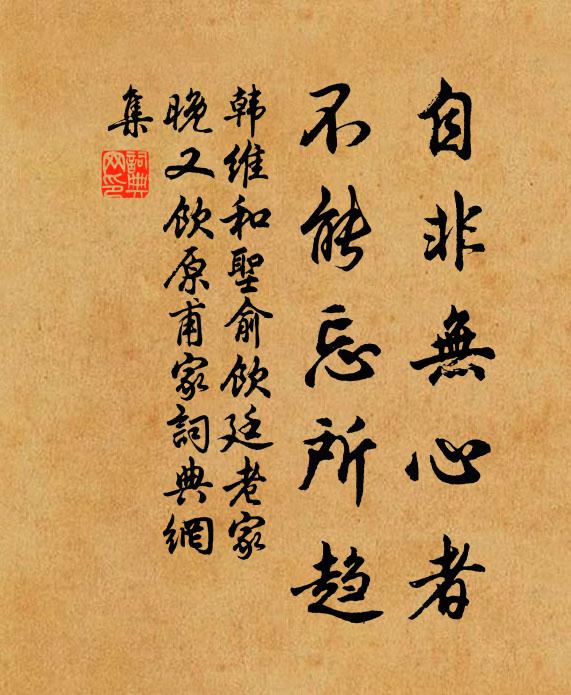 自非無心者
不能忘所趋
韩維和聖俞飲廷老家
晚又飲原甫家詞典網
集
詞典
网印